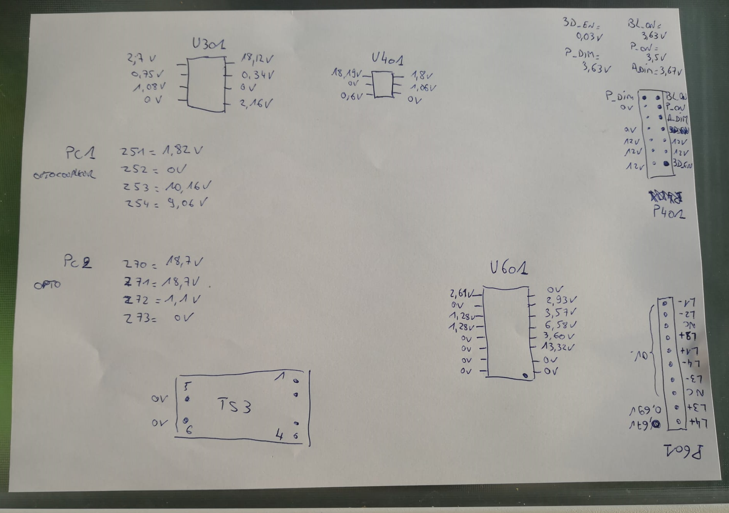 3D_EN= BL_ON=
0,03V 3,63V
P_DIM= P_ON=
3,63V 3,5V
A_DIM=3,67V
U301
2,7V 18,12V
0,75V 0,34V
1,08V 0V
0V 2,16V
U401
18,19V 1,8V
0V 1,06V
0,6V 0V
P_DIM BL_ON
0V P_ON
A_DIM
0V
12V 12V
12V 12V
12V 3D_EN
P401
PC1 251=1,82V
252=0V
253=10,16V
254=9,06V
PC2 270=18,7V
OPTO 271=18,7V.
272=1,1V
273=0V
U601
2,61V 0V
0V 2,93V
1,28V 3,57V
1,28V 6,58V
0V 3,60V
0V 13,32V
0V 0V
0V 0V
L1-
L2-
NC
L2+
L1+
L4-
L3-
NC
0,69V L3+
0,67V L4+
0V
P601
5 1
0V TS3
0V 6 4